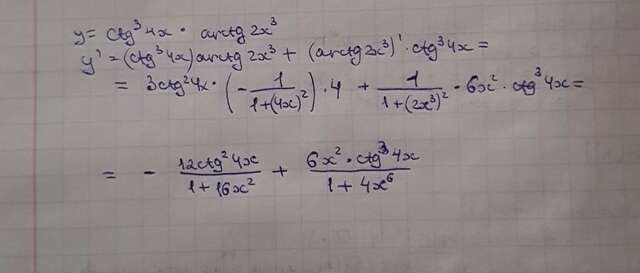 y = ctg³4x · arctg 2x³
y' = (ctg³4x) arctg 2x³ + (arctg 2x³)' · ctg³4x =
= 3ctg²4x · (- 1/(1+(4x)²)) · 4 + 1/(1+(2x³)²) · 6x² · ctg³4x =
= - 12ctg²4x/(1+16x²) + 6x² · ctg³4x/(1+4x⁶)